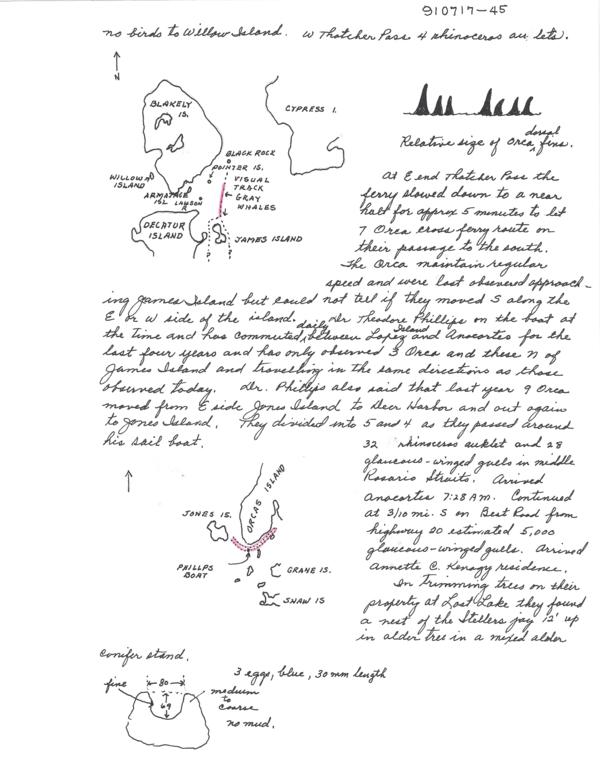 910717-45
no birds to Willow Island. W Thatcher Pass 4 rhinoceros auklets.
N
BLAKELY IS.
CYPRESS I.
BLACK ROCK
POINTER IS.
WILLOW ISLAND
VISUAL TRACK GRAY WHALES
ARMITAGE ISL
LAWSON R
DECATUR ISLAND
JAMES ISLAND
Relative size of Orca dorsal fins.
At E end Thatcher Pass the
ferry slowed down to a near
halt for approx 5 minutes to let
7 Orca cross ferry route on
their passage to the south.
The Orca maintain regular
speed and were last observed approach-
ing James Island but could not tell if they moved S along the
E or W side of the island. Dr Theodore Phillips on the boat at
the time and has commuted daily between Lopez Island and Anacortes for the
last four years and has only observed 3 Orca and these N of
James Island and travelling in the same directions as those
observed today. Dr. Phillips also said that last year 9 Orca
moved from E side Jones Island to Deer Harbor and out again
to Jones Island. They divided into 5 and 4 as they passed around
his sail boat.
32 rhinoceros auklet and 28
glaucous-winged gulls in middle
Rosario Straits. Arrived
Anacortes 7:28 AM. Continued
at 3/10 mi. S on Best Road from
highway 20 estimated 5,000
glaucous-winged gulls. Arrived
Annette C. Kenagy residence.
In trimming trees on their
property at Lost Lake they found
a nest of the Stellers jay 12' up
in alder tree in a mixed alder
JONES IS.
ORCAS ISLAND
PHILLPS BOAT
CRANE IS.
SHAW IS
conifer stand.
3 eggs, blue, 30 mm length
fine
80
69
medium to coarse
no mud.